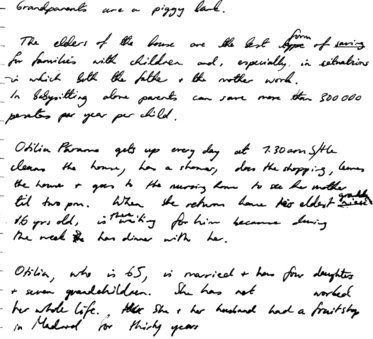 Grandparents are a piggy bank.
The elders of the house are the best form of saving
for families with children and, especially in situations
in which both the father + the mother work.
In babysitting alone parents can save more than 300 000
pesetas per year per child.
Otilia gets up every day at 7.30am. She
cleans the house, has a shower, does the shopping, leaves
the house + goes to the nursing home to see her mother
til two pm. When she returns home her eldest
16 yrs old, is waiting for him because during
the week he has dinner with her.
Otilia, who is 65, is married + has four daughters
+ seven grandchildren. She has not worked
her whole life. She + her husband had a fruitshop
in Madrid for thirty years